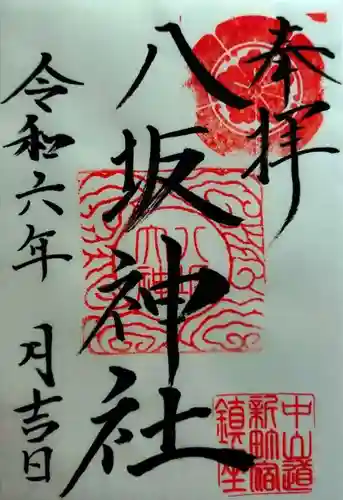 奉拝
八坂神社
令和六年 月吉日
中山道
新町宿
鎮座